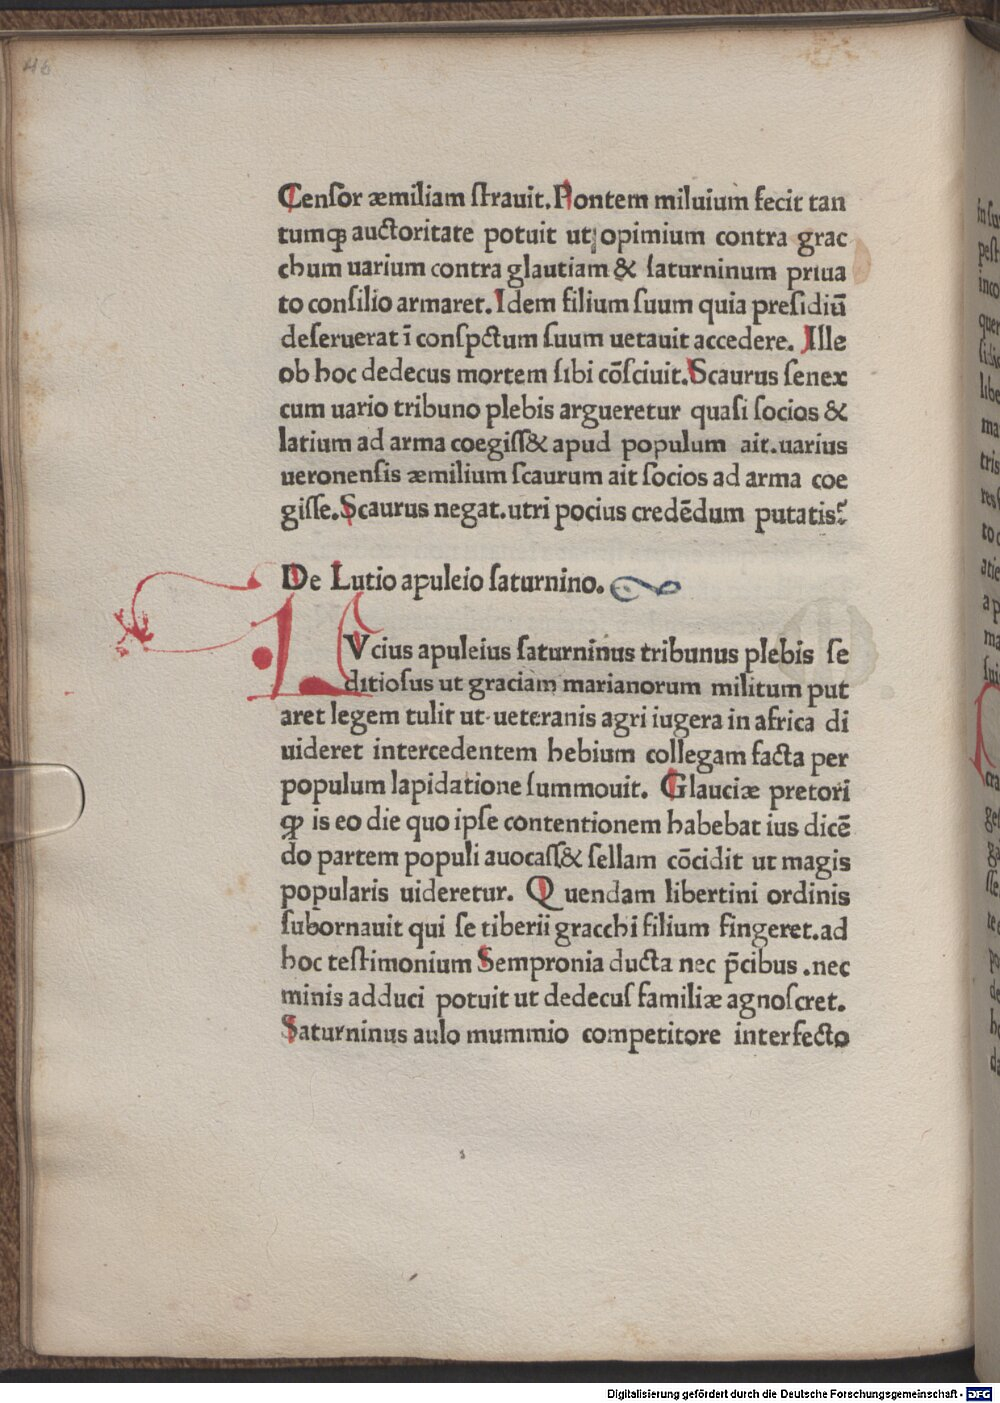 46
Cenſor æmiliam ſtrauit. Pontem miluium fecit tan
tumqꝫ auctoritate potuit ut opimium contra grac
chum uarium contra glautiam & ſaturninum priua
to conſilio armaret. Idem filium ſuum quia preſidiū
deſeruerat ī conſpctum ſuum uetauit accedere. Ille
ob hoc dedecus mortem ſibi cōſciuit. Scaurus ſenex
cum uario tribuno plebis argueretur quaſi ſocios &
latium ad arma coegiſſ& apud populum ait. uarius
ueronenſis æmilium ſcaurum ait ſocios ad arma coe
giſſe. Scaurus negat. utri pocius credēdum putatis?
De Lutio apuleio ſaturnino.
LVcius apuleius ſaturninus tribunus plebis ſe
ditioſus ut graciam marianorum militum put
aret legem tulit ut ueteranis agri iugera in africa di
uideret intercedentem hebium collegam facta per
populum lapidatione ſummouit. Glauciæ pretori
qꝫ is eo die quo ipſe contentionem habebat ius dicē
do partem populi auocaſſ& ſellam cōcidit ut magis
popularis uideretur. Quendam libertini ordinis
ſubornauit qui ſe tiberii gracchi filium fingeret. ad
hoc teſtimonium Sempronia ducta nec p̄cibus . nec
minis adduci potuit ut dedecuſ familiæ agnoſcret.
Saturninus aulo mummio competitore interfecto
Digitalisierung gefördert durch die Deutsche Forschungsgemeinschaft - DFG